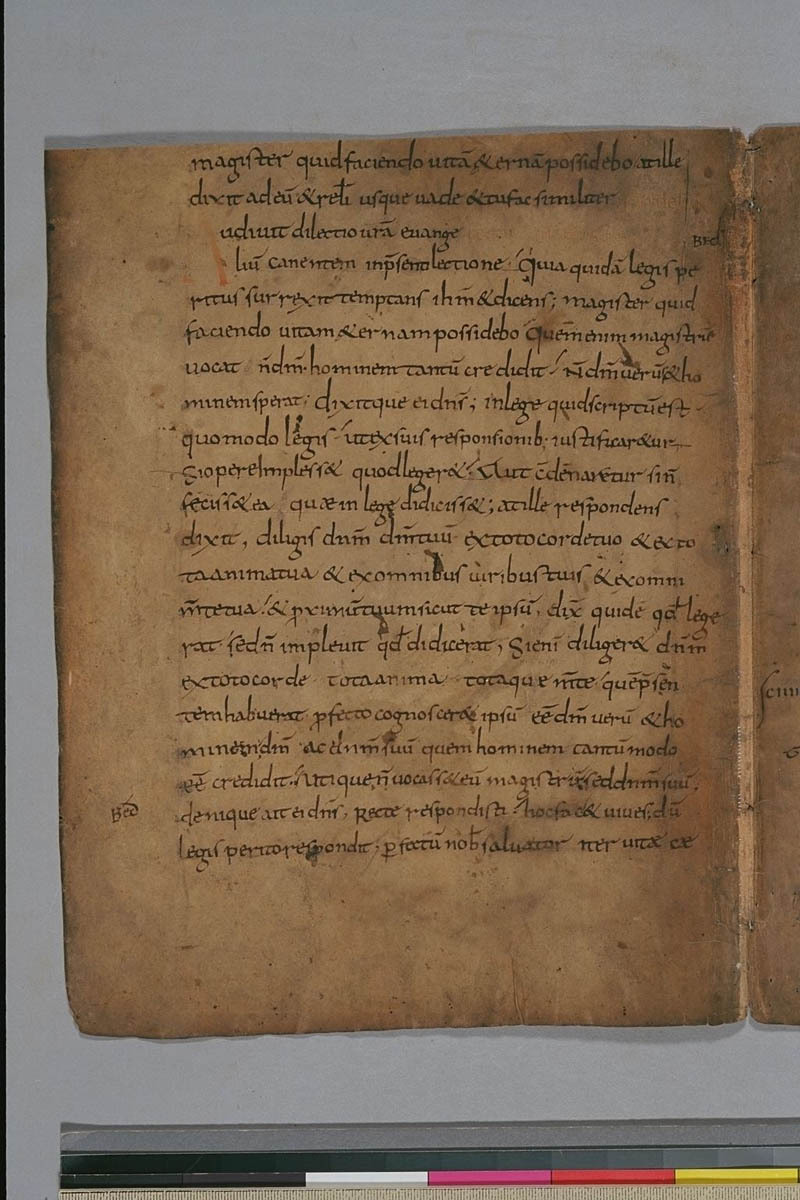 magister quid faciendo uitā &ernā possidebo atille
dixit ad eū & rel̄i usque uade & tu fac similiter
udiuit dilectio urā euange
Bed
liū canentem in p̄senti lectione Quia quidā legis pe
ritus surrexit temptans ihm̄ & dicens; magister quid
faciendo uitam &ernam possidebo Quem enim magistrū
uocat n̄ dm̄ hominem tantū credidit N̄ dm̄ uerū & ho
minem sperat; dixitque ei dn̄s; in lege quid scriptū est
quomodo legis ut ex suis responsionib; iustificar&ur
si opere impless& quod leger&. Aut c̄dēnaretur si n̄
feciss& ea quæ in lege didiciss&; atille respondens
dixit, diligis dnm̄ dm̄ tuū ex toto corde tuo & ex to
ta anima tua & ex omnibus uiribus tuis & ex omni
m̄te tua & p̄ximū tuum sicut te ipsū, dix̄ quidē qd̄ lege
rat sed n̄ impleuit qd̄ didicerat, Si eni diliger& dnm̄
ex toto corde tota anima totaque m̄te quē p̄sen
tem habuerat p̄fecto cognoscer& ipsū eē dm̄ uerū & ho
minem ac dnm̄ suū quem hominem tantūmodo
eē credidit. Utique n̄ uocass& eū magistrū sed dnm̄ suū,
Bed
denique ait ei dn̄s, Recte respondisti hoc fac & uiues, dū
legis perito respondit; p̄fectū nob̄ saluator iter uitæ cæ